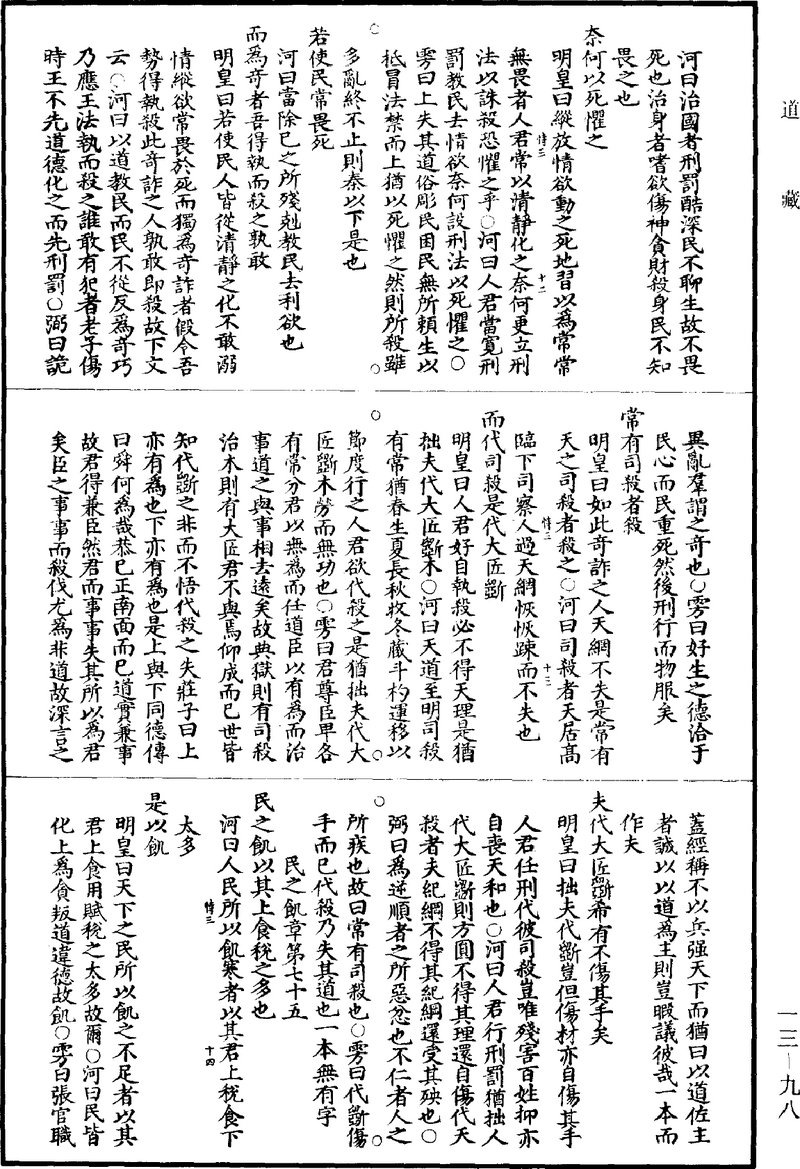 道藏
河曰治國者刑罰酷深民不聊生故不畏
死也治身者嗜欲傷神貪財殺身民不知
畏之也
奈何以死懼之
明皇曰縱放情欲動之死地習以為常常
無畏者人君常以清靜化之奈何更立刑
法以誅殺恐懼之乎○河曰人君當寬刑
罰教民去情欲奈何設刑法以死懼之○
雱曰上失其道俗彫民困民無所賴生以
抵冒法禁而上猶以死懼之然則所殺雖
多亂終不止則秦以下是也
若使民常畏死
河曰當除已之所殘剋教民去利欲也
而為奇者吾得執而殺之孰敢
明皇曰若使民人皆從清靜之化不敢溺
情縱欲常畏於死而獨為奇詐者假令吾
勢得執殺此奇詐之人孰敢即殺故下文
云○河曰以道教民而民不從反為奇巧
乃應王法執而殺之誰敢有犯者老子傷
時王不先道德化之而先刑罰○弼曰詭
異亂羣謂之奇也○雱曰好生之德洽于
民心而民重死然後刑行而物服矣
常有司殺者殺
明皇曰如此奇詐之人天網不失是常有
天之司殺者殺之○河曰司殺者天居高
臨下司察人過天網恢恢踈而不失也
而代司殺是代大匠斲
明皇曰人君好自執殺必不得天理是猶
拙夫代大匠斲木○河曰天道至明司殺
有常猶春生夏長秋收冬藏斗杓運移以
節度行之人君欲代殺之是猶拙夫代大
匠斲木勞而無功也○雱曰君尊臣卑各
有常分君以無為而任道臣以有為而治
事道之與事相去遠矣故典獄則有司殺
治木則有大匠君不與焉仰成而已世皆
知代斲之非而不悟代殺之失莊子曰上
亦有為也下亦有為也是上與下同德傳
曰舜何為哉恭已正南面而已道實兼事
故君得兼臣然君而事事失其所以為君
矣臣之事事而殺伐尤為非道故深言之
蓋經稱不以兵强天下而猶曰以道佐主
者誠以以道為主則豈暇議彼哉一本而
作夫
夫代大匠斲希有不傷其手矣
明皇曰拙夫代斲豈但傷材亦自傷其手
人君任刑代彼司殺豈唯殘害百姓抑亦
自喪天和也○河曰人君行刑罰猶拙人
代大匠斲則方圓不得其理還自傷代天
殺者夫紀綱不得其紀綱還受其殃也○
弼曰為逆順者之所惡忿也不仁者人之
所疾也故曰常有司殺也○雱曰代斲傷
手而已代殺乃失其道也一本無有字
民之飢章第七十五
民之飢以其上食稅之多也
河曰人民所以飢寒者以其君上稅食下
太多
是以飢
明皇曰天下之民所以飢之不足者以其
君上食用賦稅之太多故爾○河曰民皆
化上為貪叛道違德故飢○雱曰張官職
一三—九八